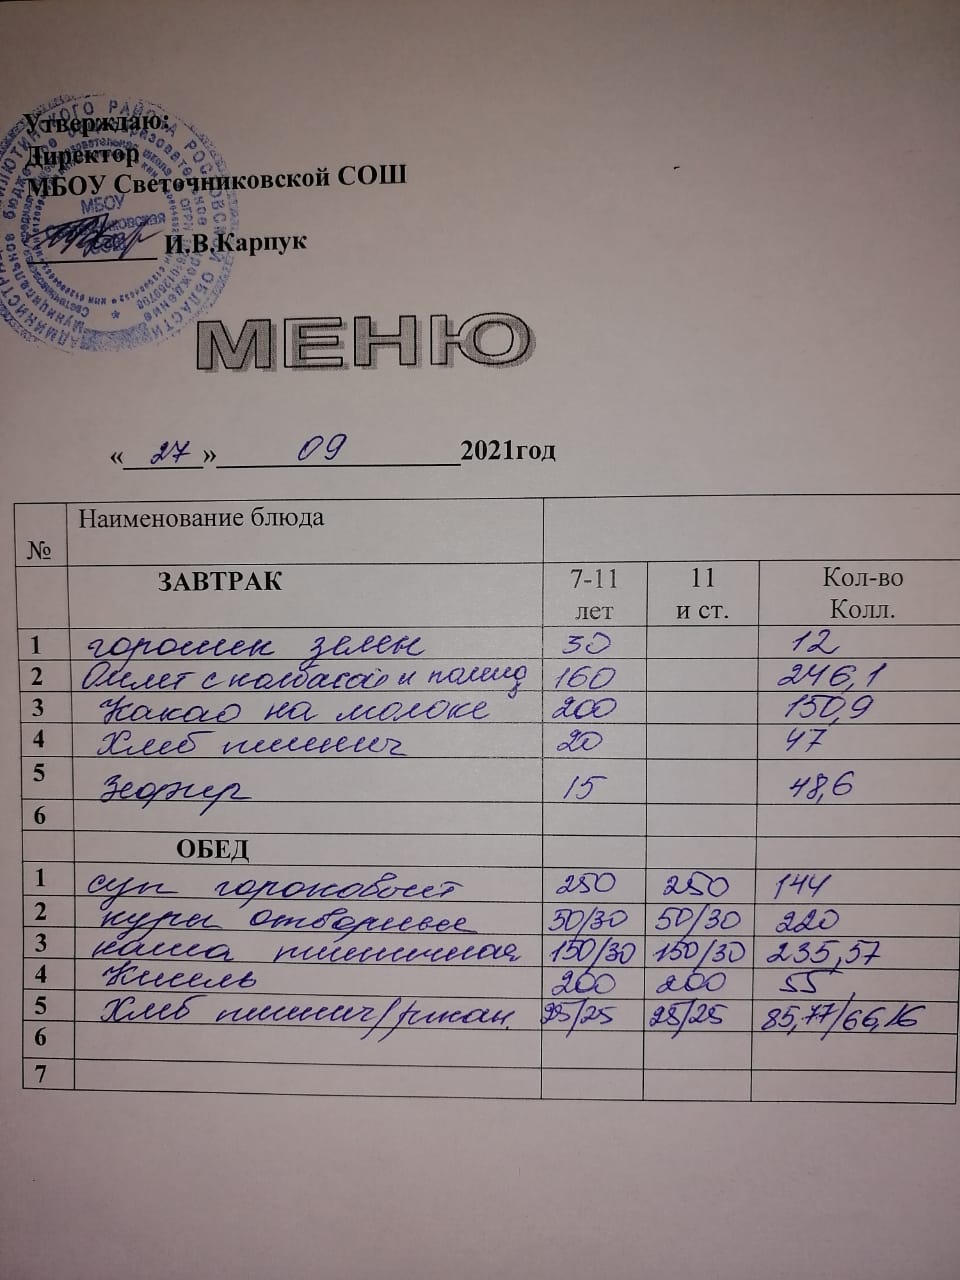 Утверждаю:
Директор
МБОУ Светочниковской СОШ
И.В.Карпук
МЕНЮ
« 27 » 09 2021год
№ Наименование блюда
ЗАВТРАК 7-11 лет 11 и ст. Кол-во Колл.
1 горошек зелен 30 12
2 Омлет с колбасой и помид 160 246,1
3 Какао на молоке 200 150,9
4 Хлеб пшенич 20 47
5 Зефир 15 48,6
6
ОБЕД
1 суп гороховый 250 250 144
2 куры отварные 50/30 50/30 220
3 каша пшеничная 150/30 150/30 235,57
4 Кисель 200 200 55
5 Хлеб пшенич/ржан. 25/25 25/25 85,77/66,16
6
7